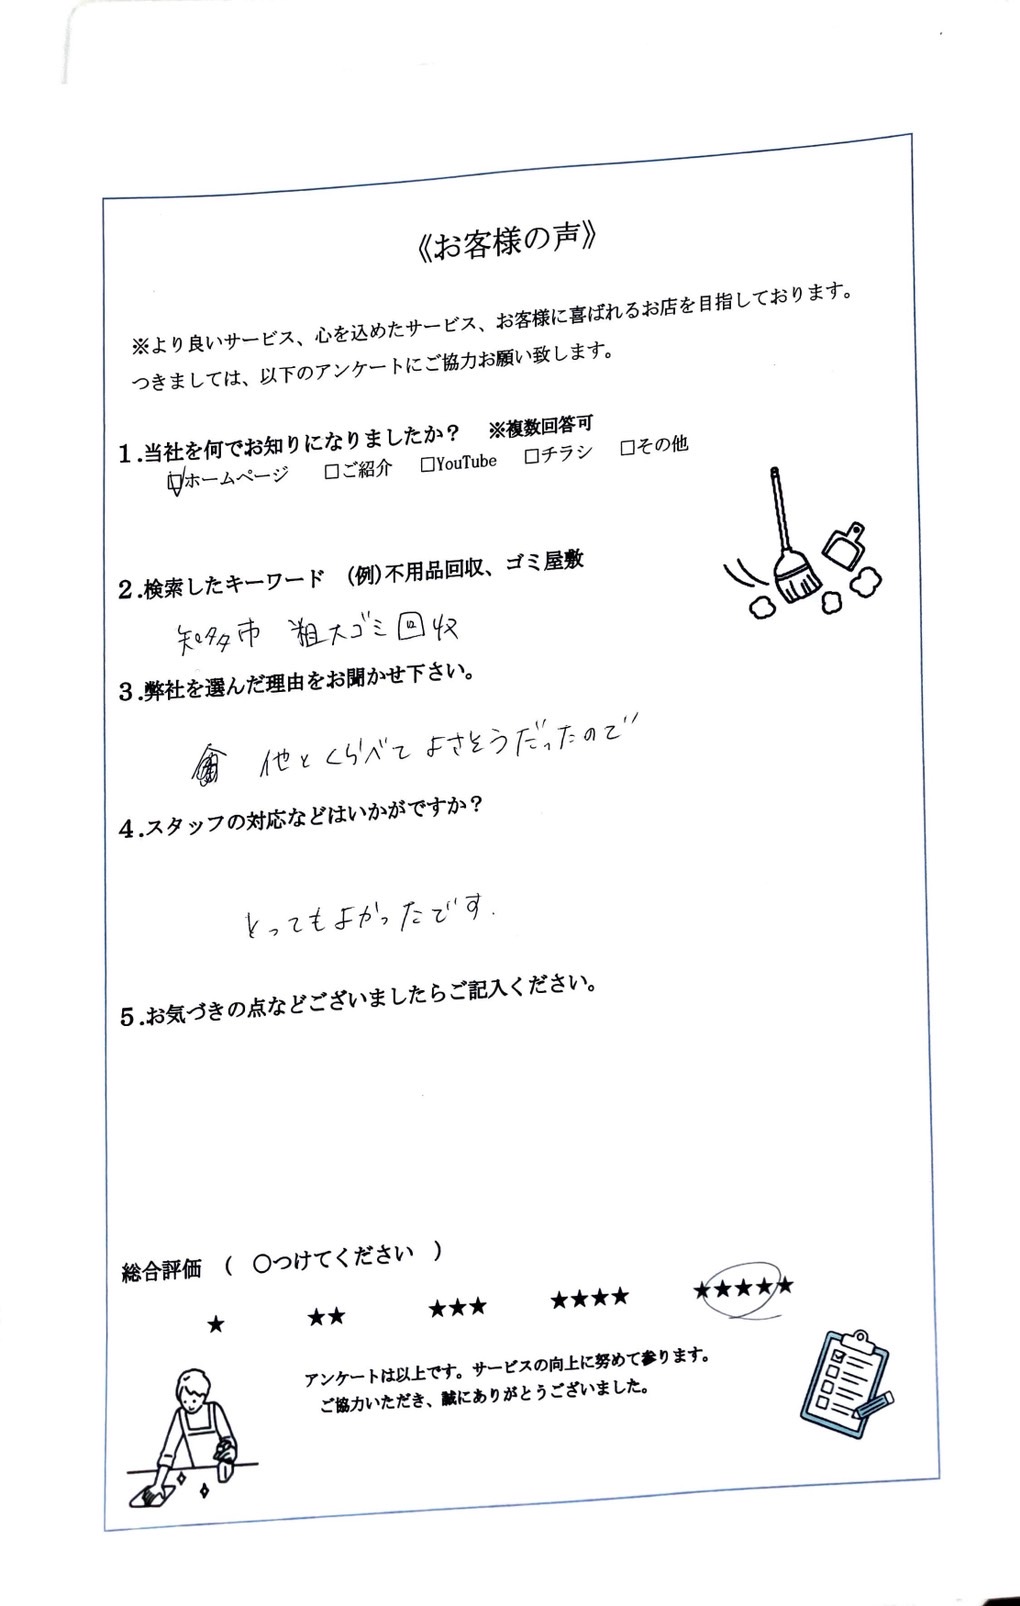 《お客様の声》
※より良いサービス、心を込めたサービス、お客様に喜ばれるお店を目指しております。
つきましては、以下のアンケートにご協力お願い致します。
1.当社を何でお知りになりましたか？　※複数回答可
☑ホームページ　□ご紹介　□YouTube　□チラシ　□その他
2.検索したキーワード　(例)不用品回収、ゴミ屋敷
知多市　粗大ゴミ回収
3.弊社を選んだ理由をお聞かせ下さい。
他とくらべてよさそうだったので
4.スタッフの対応などはいかがですか？
とってもよかったです.
5.お気づきの点などございましたらご記入ください。
総合評価　(　〇つけてください　)
★　★★　★★★　★★★★　★★★★★
アンケートは以上です。サービスの向上に努めて参ります。
ご協力いただき、誠にありがとうございました。